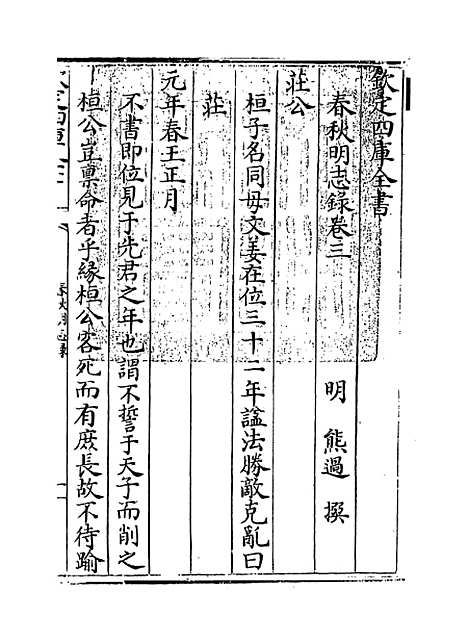 欽定四庫全書
春秋明志錄卷三
明 熊過 撰
莊公
桓子名同母文姜在位三十二年諡法勝敵克亂曰
莊
元年春王正月
不書即位見于先君之年也謂不誓于天子而削之
桓公豈禀命者乎緣桓公客死而有庶長故不待踰